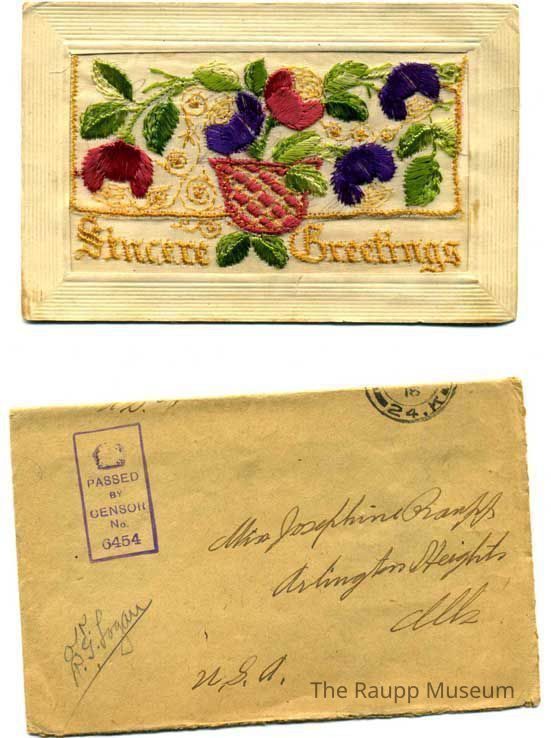 Sincere Greetings
24.K
PASSED
BY
CENSOR
No.
6454
Miss Josephine Raupp
Arlington Heights
Ills
U.S.A.
The Raupp Museum